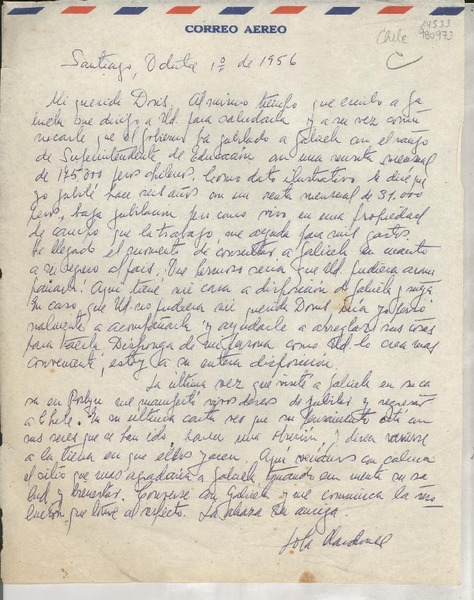 CORREO AEREO
Chile
Santiago, Octubre 1º de 1956
Mi querida Doris, Al mismo tiempo que escribo a Ga
briela que dirijo a Ud. para saludarla y a su vez comu
nicarle que el gobierno ha jubilado a Gabriela con el rango
de Superintendente de Educación con una renta mensual
de 175.000 pesos chilenos. Como dato ilustrativo le diré que
yo jubilé hace seis años con una renta mensual de 31.000
pesos, baja jubilación pero como vivo en una propiedad
de campo que la trabajo, me ayuda para mis gastos.
Ha llegado el momento de consultar a Gabriela en cuanto
a su regreso al país. Que hermoso sería que Ud. pudiera acom
pañarla. Aquí tiene mi casa a disposición de Gabriela y suya.
En caso, que Ud. no pudiera mi querida Doris, iría yo perso
nalmente a acompañarla y ayudarle a arreglar sus cosas
para Disponga de mi persona como Ud. lo crea mas
conveniente, estoy a su entera disposición.
La última vez que visité a Gabriela en su ca
sa en me manifestó vivos deseos de jubilar y regresar
a Chile. En su última carta veo que su pensamiento está en
sus seres que se han ido, hacer una y desea reunirse
a la tierra en que ellos yacen. Aquí veríamos con calma
el sitio que mas agradaría a Gabriela tomando en cuenta su sa
lud y bienestar. Converse con Gabriela y me comunica la reso
lución que tome al respecto. La abraza su amiga